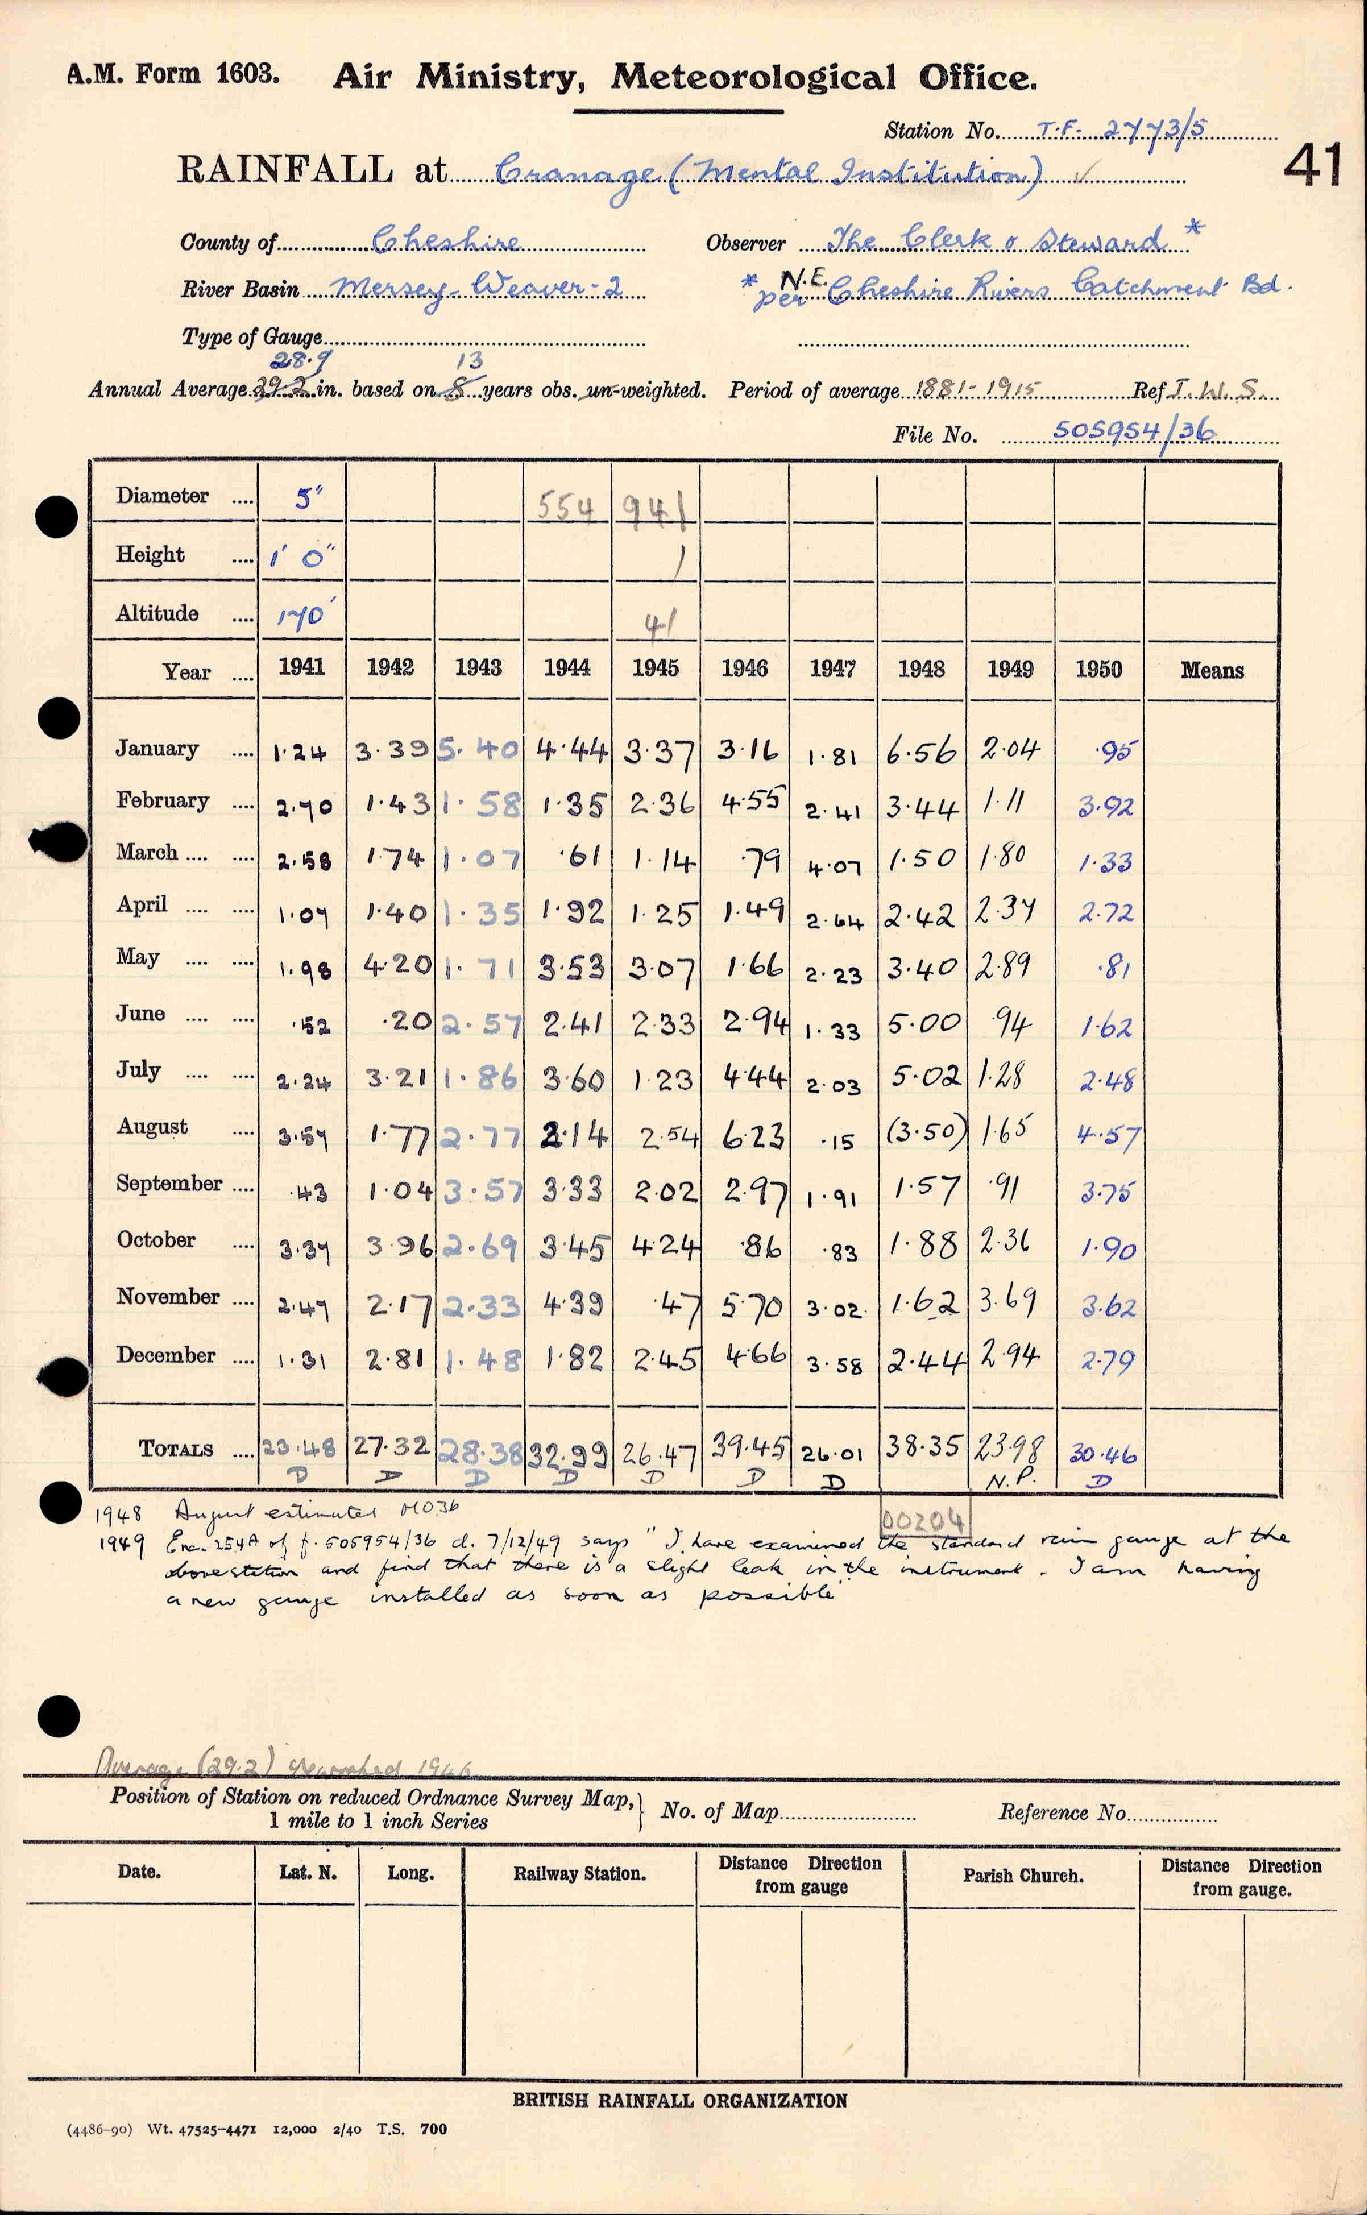 A.M. Form 1603. Air Ministry, Meteorological Office.
Station No. T.F. 2773/5
RAINFALL at Cranage (Mental Institution) ✓ 41
County of Cheshire Observer The Clerk & Steward *
River Basin Mersey-Weaver-2 * per N.E. Cheshire Rivers Catchment Bd.
Type of Gauge
28.9 13
Annual Average 29.2 in. based on 8 years obs. un-weighted. Period of average 1881-1915 Ref J.W.S.
File No. 505954/36
Diameter 5" 554 941
Height 1' 0" 1
Altitude 170' 41
Year 1941 1942 1943 1944 1945 1946 1947 1948 1949 1950 Means
January 1.24 3.39 5.40 4.44 3.37 3.16 1.81 6.56 2.04 .95
February 2.70 1.43 1.58 1.35 2.36 4.55 2.41 3.44 1.11 3.92
March 2.58 1.74 1.07 .61 1.14 .79 4.07 1.50 1.80 1.33
April 1.07 1.40 1.35 1.92 1.25 1.49 2.64 2.42 2.37 2.72
May 1.98 4.20 1.71 3.53 3.07 1.66 2.23 3.40 2.89 .81
June .52 .20 2.57 2.41 2.33 2.94 1.33 5.00 .94 1.62
July 2.24 3.21 1.86 3.60 1.23 4.44 2.03 5.02 1.28 2.48
August 3.57 1.77 2.77 2.14 2.54 6.23 .15 (3.50) 1.65 4.57
September .43 1.04 3.57 3.33 2.02 2.97 1.91 1.57 .91 3.75
October 3.37 3.96 2.69 3.45 4.24 .86 .83 1.88 2.36 1.90
November 2.47 2.17 2.33 4.39 .47 5.70 3.02 1.62 3.69 3.62
December 1.31 2.81 1.48 1.82 2.45 4.66 3.58 2.44 2.94 2.79
TOTALS 23.48 27.32 28.38 32.99 26.47 39.45 26.01 38.35 23.98 30.46
D D D D D D D N.P. D
1948 August estimated MO3b
00204
1949 Enc. 254A of f. 505954/36 d. 7/12/49 says "I have examined the standard rain gauge at the
above station and find that there is a slight leak in the instrument. I am having
a new gauge installed as soon as possible"
Average (29.2) reworked 1946
Position of Station on reduced Ordnance Survey Map, } No. of Map Reference No.
1 mile to 1 inch Series
Date. Lat. N. Long. Railway Station. Distance Direction from gauge Parish Church. Distance Direction from gauge.
BRITISH RAINFALL ORGANIZATION
(4486-90) Wt. 47525-4471 12,000 2/40 T.S. 700